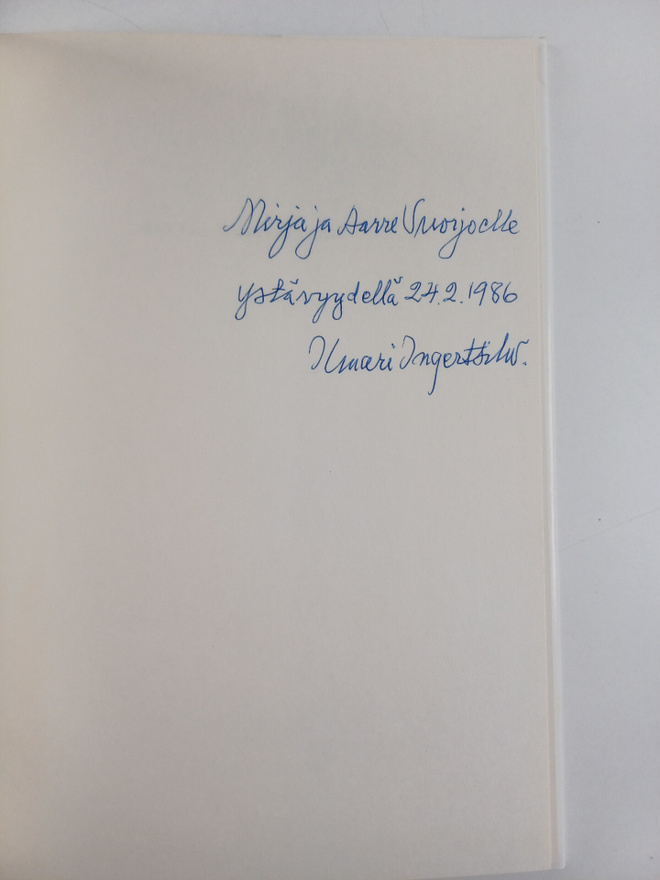 Mirja ja Aarre Vuorjoelle
ystävyydellä 24.2.1986
Ilmari